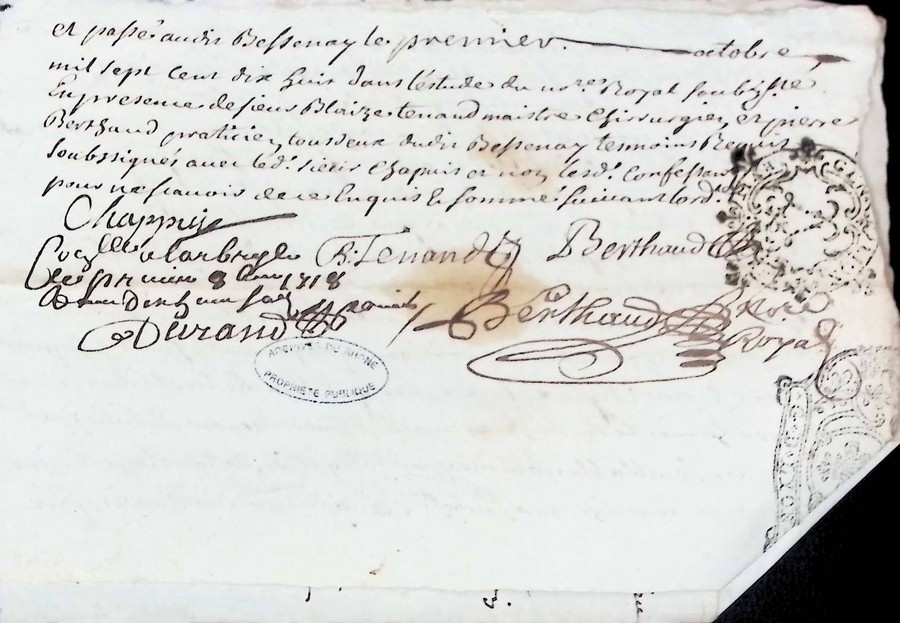 et passé audit Bessenay le premier octobre
mil sept cent dix huit dans l'estude du no.re Royal soubz.né
En presence de sieur Blaize tenand maistre chirurgien et pierre
Berthaud praticien tous deux dudit Bessenay temoins Requis
soubssignés avec led. sieur Chapuis et non lesd. Confessants
pour ne sçavoir de ce Enquis Et sommé suivant lord.
Chappuis
B. Tenand Berthaud
Con.llé a Larbresle
le premier 8bre 1718
Durand
Berthaud No.re
Royal
ARCHIVES DU RHONE
PROPRIETE PUBLIQUE